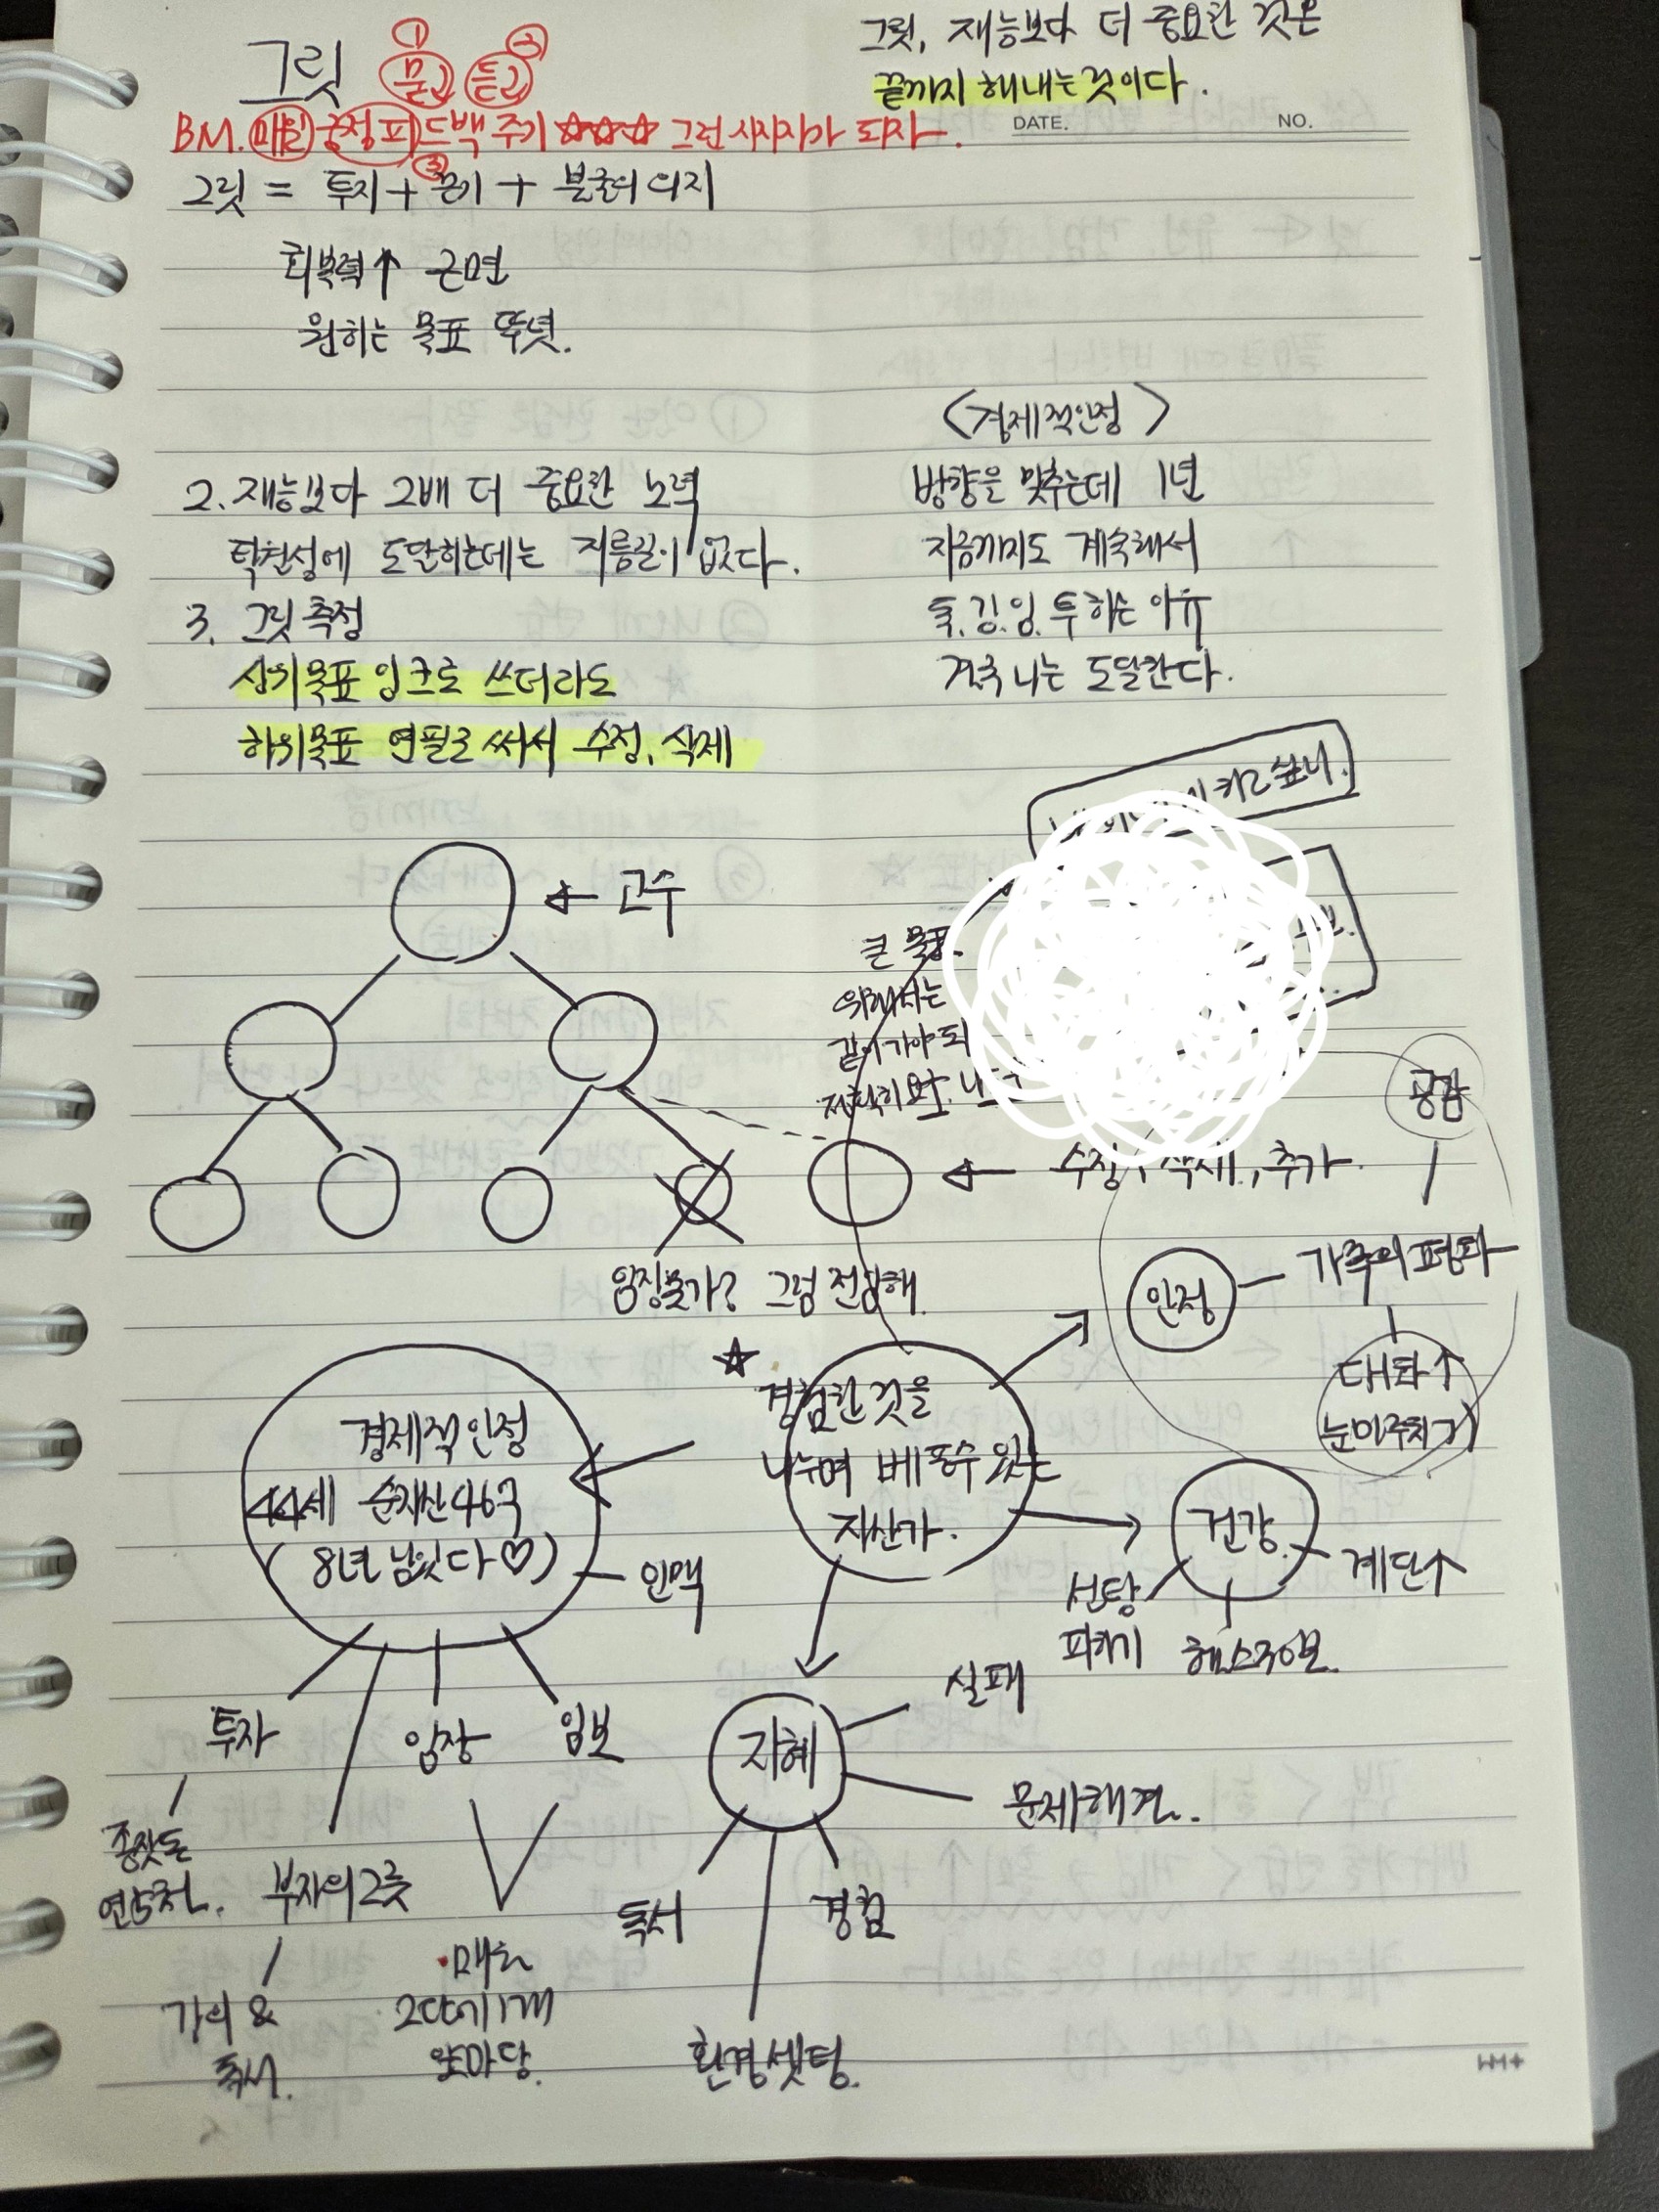 그릿
① 묻고 ② 듣고
그릿, 재능보다 더 중요한 것은
끝까지 해내는 것이다.
BM. 매일 긍정 피드백 주기 ☆☆☆ 그런 사람이 되자.
DATE. NO.
③
그릿 = 투지 + 끈기 + 불굴의 의지
회복력↑ 근면
원하는 목표 뚜렷.
2. 재능보다 2배 더 중요한 노력
탁월성에 도달하는데는 지름길이 없다.
3. 그릿 측정
상위목표 잉크로 쓰더라도
하위목표 연필로 써서 수정, 삭제
<경제적안정>
방향을 맞추는데 1년
지금까지도 계속해서
독.강.임.투 하는 이유
결국 나는 도달한다.
키고 싶니.
← 고수
큰 목표.
위해서는
같이가야 되
← 수정, 삭제, 추가.
임장불가? 그럼 전임해.
공감
안정 - 가족의 평화
대화↑
눈마주치기
☆ 경험한 것을
나누며 베풀 수 있는
자산가.
경제적 안정
44세 순자산 46억
(8년 남았다♡)
인맥
투자
임장
임보
종잣돈
연5천.
부자의 그릇
강의 &
독서.
·매논
앞마당.
건강
계단↑
선탕
피하기
헬스30분.
지혜
실패
문제해결.
독서
경험
환경셋팅.